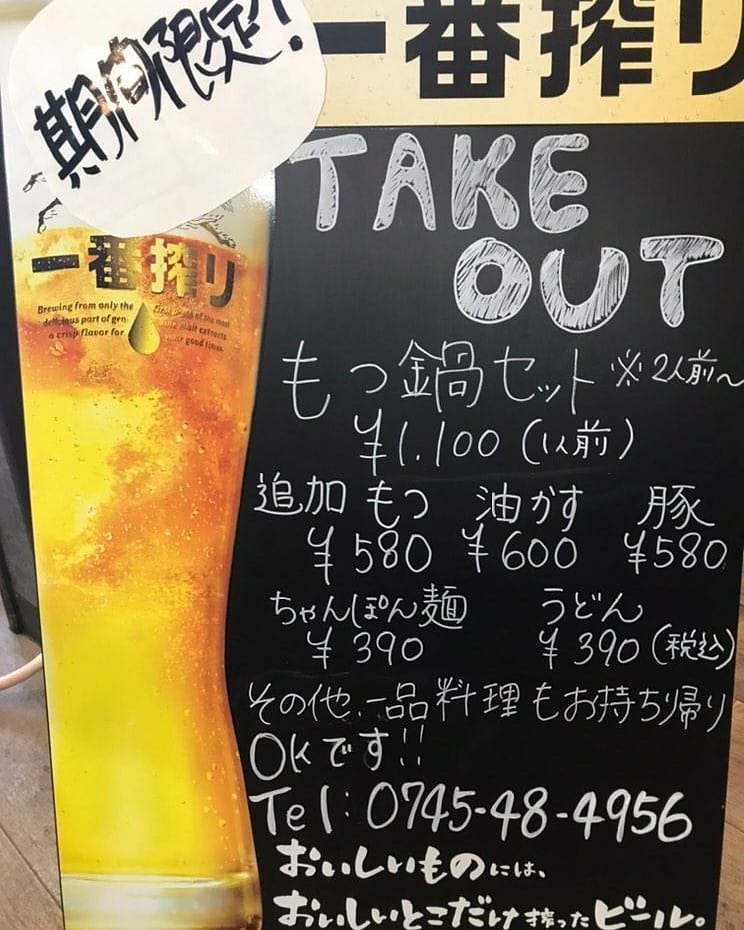 期間限定!
一番搾り
TAKE
OUT
一番搾り
Brewing from only the
delicious part of gen
a crisp flavor for
もつ鍋セット ※2人前〜
¥1.100(1人前)
追加もつ 油かす 豚
¥580 ¥600 ¥580
ちゃんぽん麺 うどん
¥390 ¥390(税込)
その他、一品料理もお持ち帰り
OKです!!
Tel:0745-48-4956
おいしいものには、
おいしいとこだけ搾ったビール。